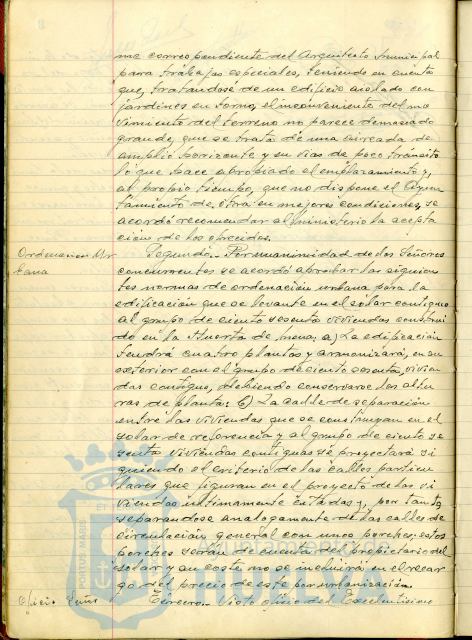 me correspondiente del Arquitecto Municipal
para trabajos especiales, teniendo en cuenta
que, tratandose de un edificio aislado con
jardines en torno, el inconveniente del mo
vimiento del terreno no parece demasiado
grande, que se trata de una aireada de
amplio horizonte y en vias de poco transito
lo que hace apropiado el emplazamiento y,
al propio tiempo, que no dispone el Ayun
tamiento de otra en mejores condiciones, se
acordó recomendar al Ministerio la acepta
ción de los ofrecidos.
Ordenacion Ur
bana
Segundo.- Por unanimidad de los Señores
concurrentes se acordó aprobar las siguien
tes normas de ordenación urbana para la
edificación que se levante en el solar contiguo
al grupo de ciento sesenta viviendas construi
do en la Huerta de Mena: a) La edificación
tendrá cuatro plantas y armonizará, en su
exterior con el grupo de ciento sesenta, vivien
das contiguo, debiendo conservarse las altu
ras de planta: b) La calle de separación
entre las viviendas que se construyan en el
solar de referencia y al grupo de ciento se
senta viviendas contiguas se proyectará si
guiendo el criterio de las calles particu
lares que figuran en el proyecto de las vi
viendas ultimamente citadas y, por tanto,
separandose analogamente de las calles de
circulación general con unos porches; estos
porches serán de cuenta del propietario del
solar y su costo no se incluirá en el recar
go del precio de este por urbanización.
Oficio
Tercero.- Visto oficio del Excelentisimo
PORTUS MARIS
Ayuntamiento
HUELVA